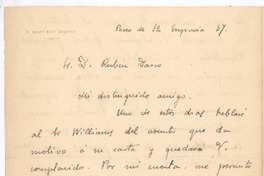 Paseo de Sta Engracia 37.
Sr. D. Rubén Darío
Mi distinguido amigo.
Uno de estos dias hablaré
al Sr Williams del asunto que da
motivo a su carta y quedará V.
complacido. Por mi cuenta me permito